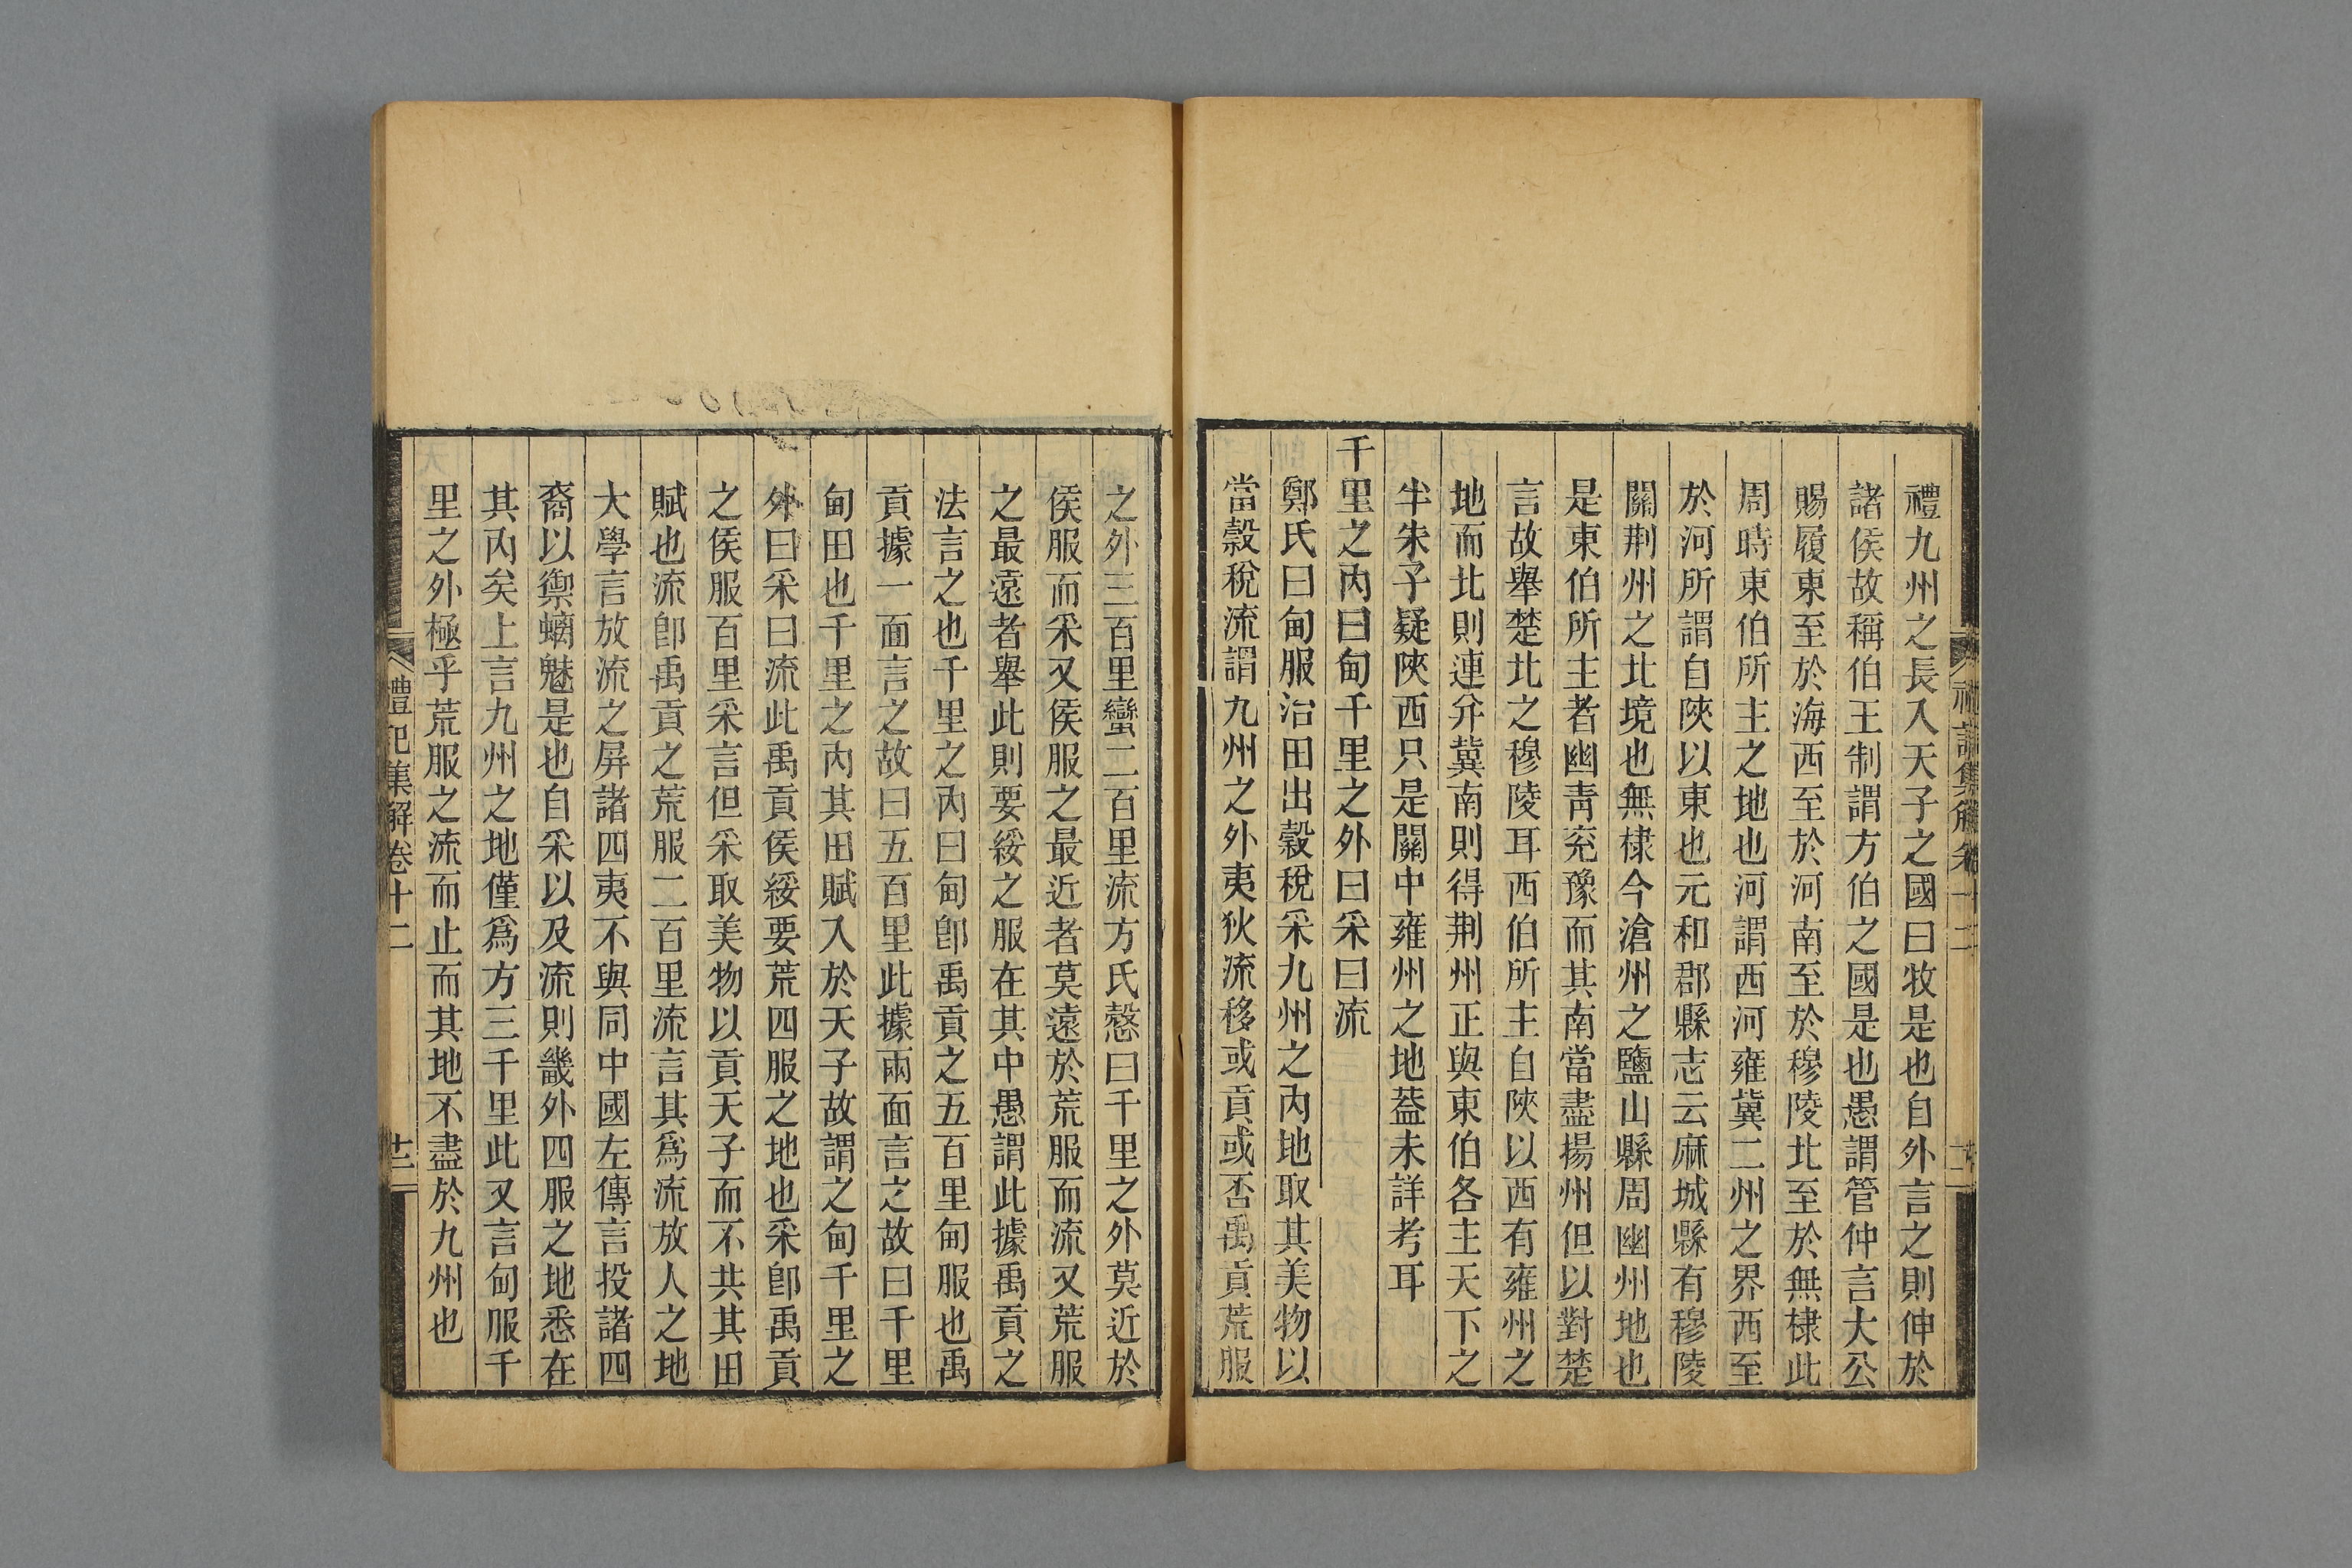 禮九州之長入天子之國曰牧是也自外言之則伸於
諸侯故稱伯王制謂方伯之國是也愚謂管仲言大公
賜履東至於海西至於河南至於穆陵北至於無棣此
周時東伯所主之地也河謂西河雍冀二州之界西至
於河所謂自陝以東也元和郡縣志云麻城縣有穆陵
關荆州之北境也無棣今滄州之鹽山縣周幽州地也
是東伯所主者幽靑兖豫而其南當盡揚州但以對楚
言故舉楚北之穆陵耳西伯所主自陝以西有雍州之
地而北則連并冀南則得荆州正與東伯各主天下之
半朱子疑陝西只是關中雍州之地葢未詳考耳
千里之內曰甸千里之外曰采曰流
鄭氏曰甸服治田出穀稅采九州之內地取其美物以
當穀稅流謂九州之外夷狄流移或貢或否禹貢荒服
之外三百里蠻二百里流方氏慤曰千里之外莫近於
侯服而采又侯服之最近者莫遠於荒服而流又荒服
之最遠者舉此則要綏之服在其中愚謂此據禹貢之
法言之也千里之內曰甸卽禹貢之五百里甸服也禹
貢據一面言之故曰五百里此據兩面言之故曰千里
甸田也千里之內其田賦入於天子故謂之甸千里之
外曰采曰流此禹貢侯綏要荒四服之地也采卽禹貢
之侯服百里采言但采取美物以貢天子而不共其田
賦也流卽禹貢之荒服二百里流言其爲流放人之地
大學言放流之屏諸四夷不與同中國左傳言投諸四
裔以禦螭魅是也自采以及流則畿外四服之地悉在
其內矣上言九州之地僅爲方三千里此又言甸服千
里之外極乎荒服之流而止而其地不盡於九州也
禮記集解卷十二